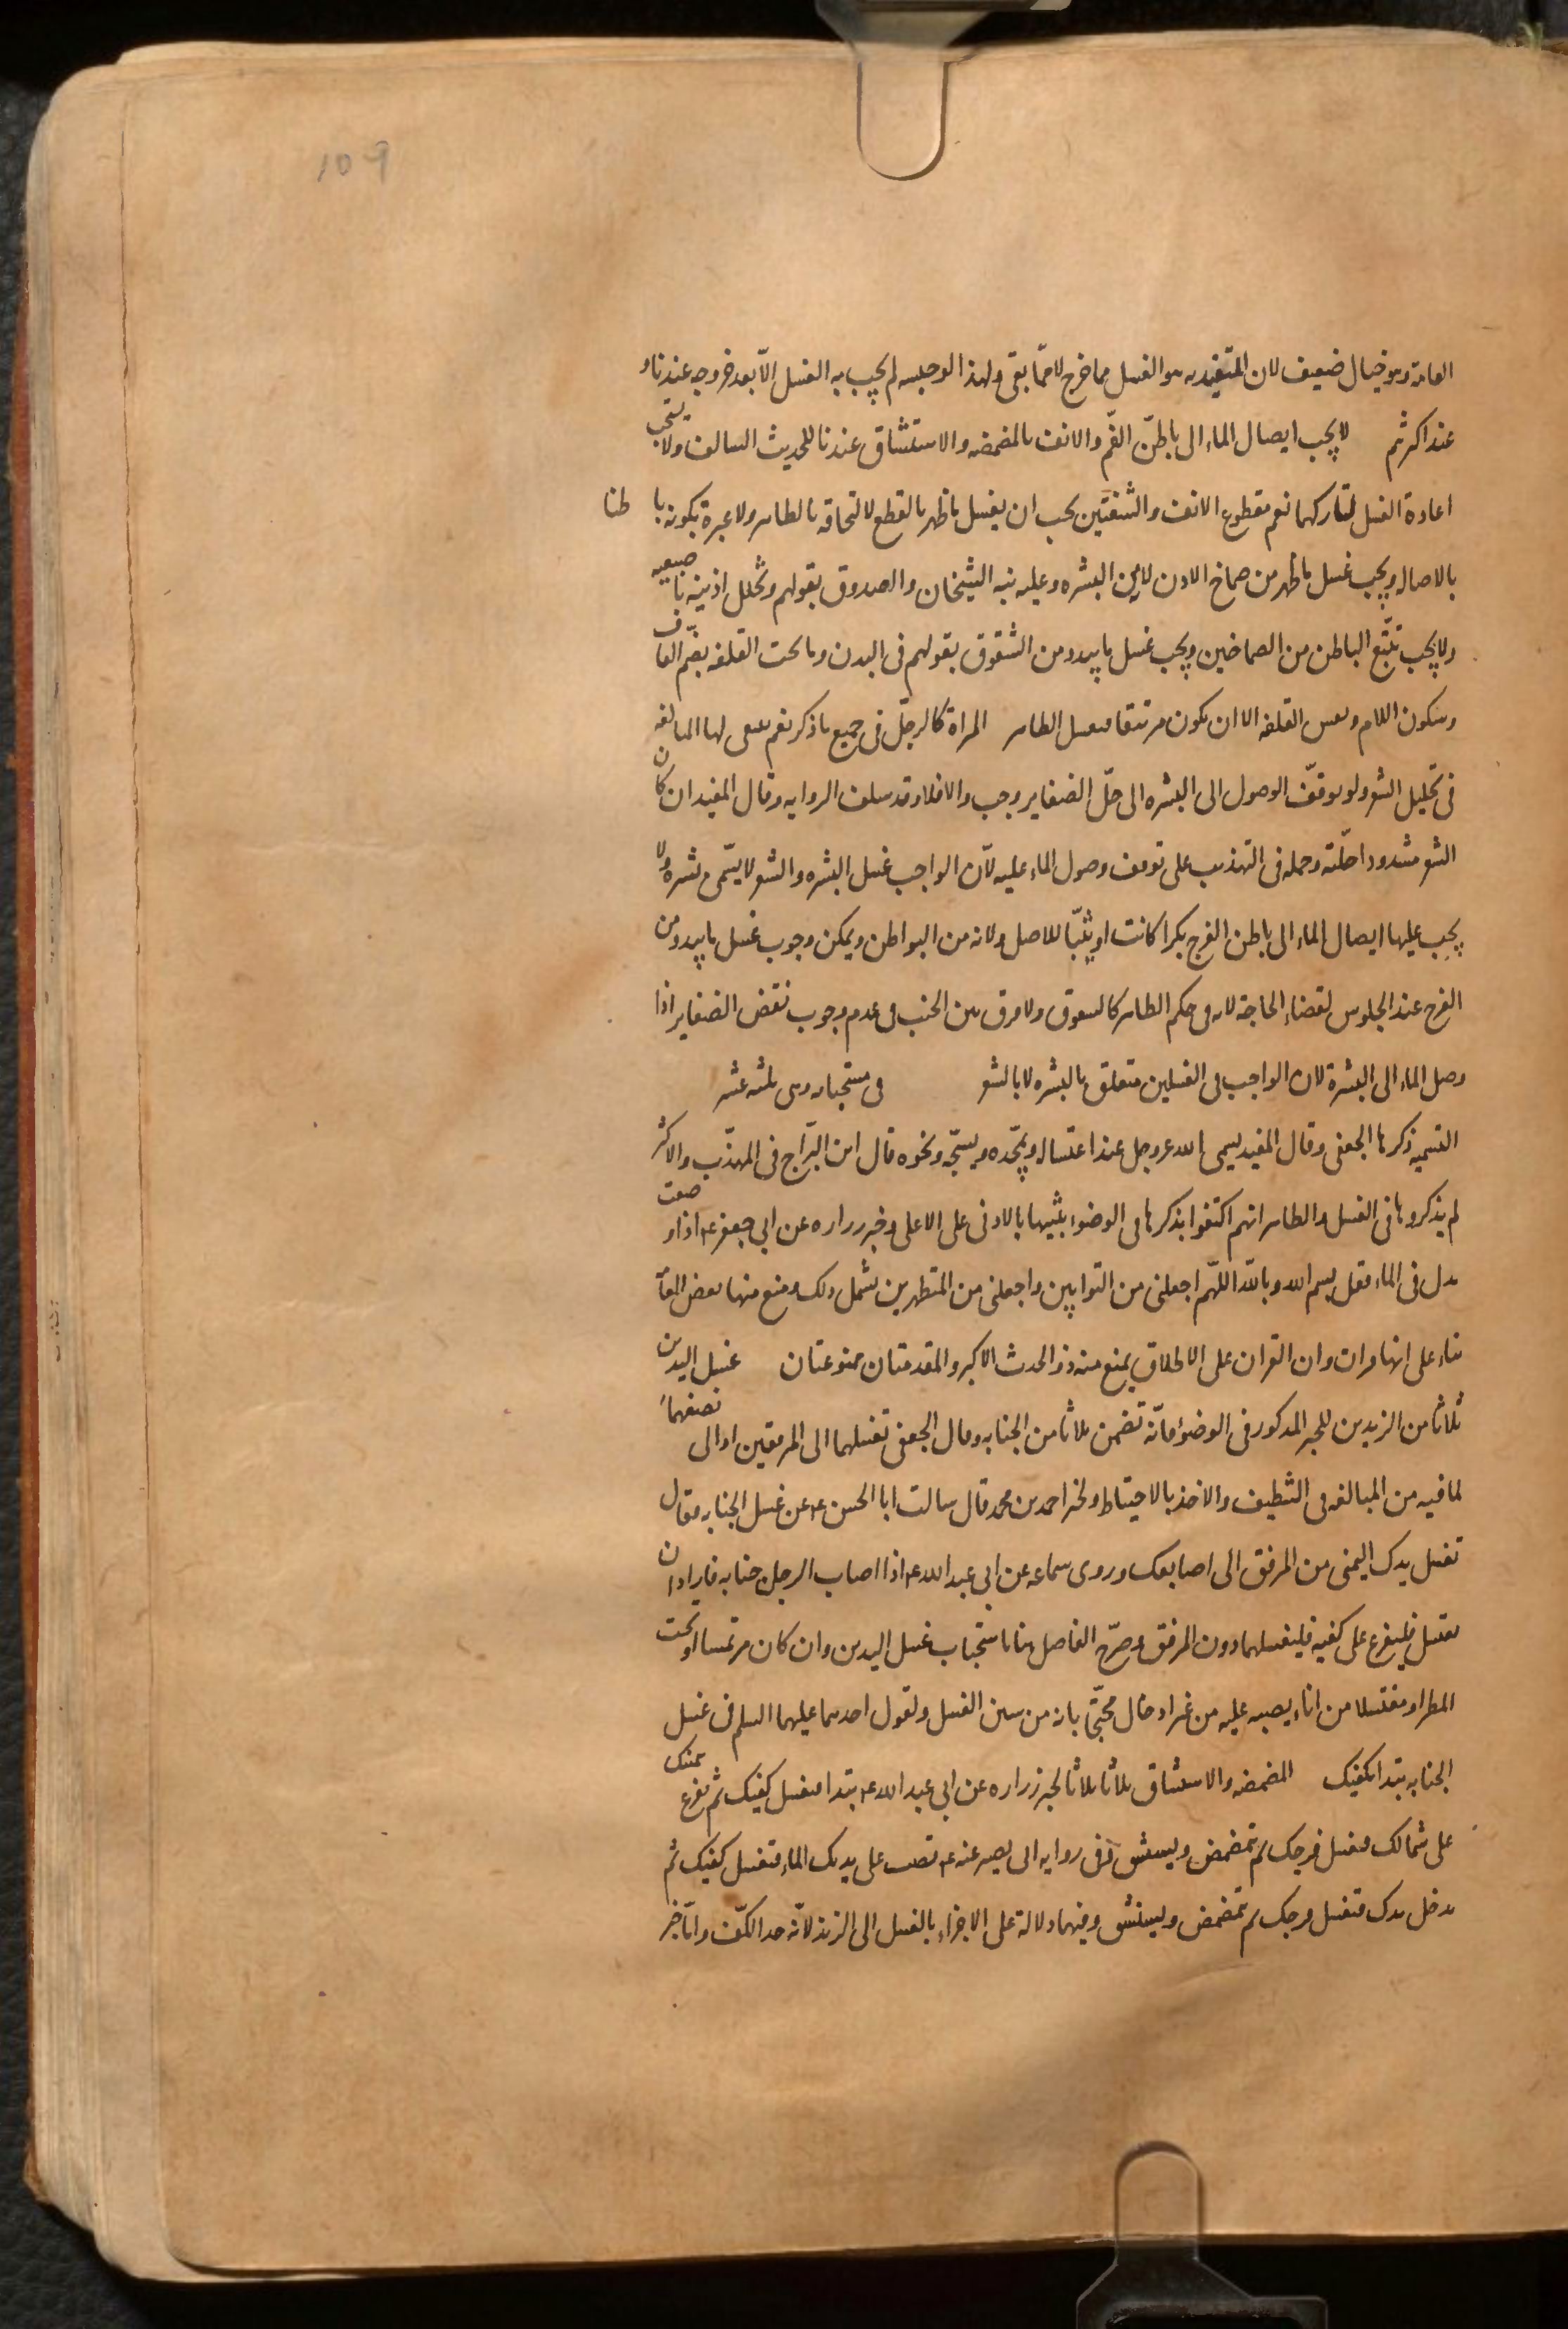 109
العامة وهو خيال ضعيف لان المتعبد به هو الغسل مما خرج لا مما بقى ولهذا لو حبسه لم يجب به الغسل الّا بعد خروجه عندنا و
عند اكثرهم لا يجب ايصال الماء الى باطن الفم والانف بالمضمضه والاستنشاق عندنا للحديث السالف ولا يستحب
اعادة الغسل لتاركهما نعم مقطوع الانف والشفتين يجب ان يغسل ما ظهر بالقطع لالتحاقه بالظاهر ولا عبرة بكونه با طنا
بالاصاله ويجب غسل ما ظهر من صماخ الاذن لانه من البشره وعليه نبه الشيخان والصدوق بقولهم وتخلل اذنيه باصبعيه
ولا يجب تتبّع الباطن من الصماخين ويجب غسل ما يبدو من الشقوق بقولهم فى البدن وما تحت القلفه بضم القاف
وسكون اللام ونفس القلفه الا ان يكون مرتتقا فيغسل الظاهر المراة كالرجل فى جميع ما ذكر نعم ينبغى لها المبالغه
فى تخليل الشعر ولو توقف الوصول الى البشره الى حلّ الضفاير وجب والا فلا وقد سلف الروايه وقال المفيد ان كان
الشعر مشدودا حلّته وحمله فى التهذيب على توقف وصول الماء عليه لانّ الواجب غسل البشره والشعر لا يسمّى بشره ولا
يجب عليها ايصال الماء الى باطن الفرج بكرا كانت او ثيّبا للاصل ولانه من البواطن ويمكن وجوب غسل ما يبدو من
الفرج عند الجلوس لقضاء الحاجة لانه فى حكم الظاهر كالشقوق ولا فرق بين الجنب فى عدم وجوب نقض الضفاير اذا
وصل الماء الى البشرة لان الواجب فى الغسلين متعلق بالبشره لا بالشعر فى مستحباته وهى ثلثه عشر
التسميه ذكرها الجعفى وقال المفيد يسمى الله عز وجل عند اغتساله ويمجّده ويسبّحه ونحوه قال ابن البرّاج فى المهذّب والاكثر
لم يذكروها فى الغسل والظاهر انهم اكتفوا بذكرها فى الوضوء تنبيها بالادنى على الاعلى وخبر زراره عن ابى جعفر ع اذا وضعت
يدك فى الماء فقل بسم الله وبالله اللّهم اجعلنى من التوابين واجعلنى من المتطهرين يشمل ذلك ومنع منها بعض العامّة
بناء على انها قران وان القران على الاطلاق يمنع منه ذو الحدث الاكبر والمقدمتان ممنوعتان غسل اليدين
ثلاثا من الزندين للخبر المذكور فى الوضوء فانّه تضمن ثلاثا من الجنابه وقال الجعفى تغسلهما الى المرفقين او الى نصفهما
لما فيه من المبالغه فى التنظيف والاخذ بالاحتياط ولخبر احمد بن محمد قال سالت ابا الحسن ع عن غسل الجنابه فقال
تغسل يدك اليمنى من المرفق الى اصابعك وروى سماعه عن ابى عبد الله ع اذا اصاب الرجل جنابه فاراد ان
يغتسل فليفرغ على كفيه فليغسلهما دون المرفق وصرّح الفاضل هنا باستحباب غسل اليدين وان كان مرتمسا او تحت
المطر او مغتسلا من اناء يصبه عليه من غير ادخال محتجّا بانه من سنن الغسل ولقول احدهما عليهما السلم فى غسل
الجنابه تبدا بكفيك المضمضه والاستنشاق ثلاثا ثلاثا لخبر زراره عن ابى عبد الله ع تبدا فتغسل كفيك ثم تفرغ بيمينك
على شمالك فتغسل فرجك ثم تمضمض وتستنشق وفى روايه ابى بصير عنه ع تصب على يديك الماء فتغسل كفيك ثم
تدخل يدك فتغسل فرجك ثم تمضمض وتستنشق وفيهما دلالة على الاجزاء بالغسل الى الزند لانّه حد الكف وانّ اخر